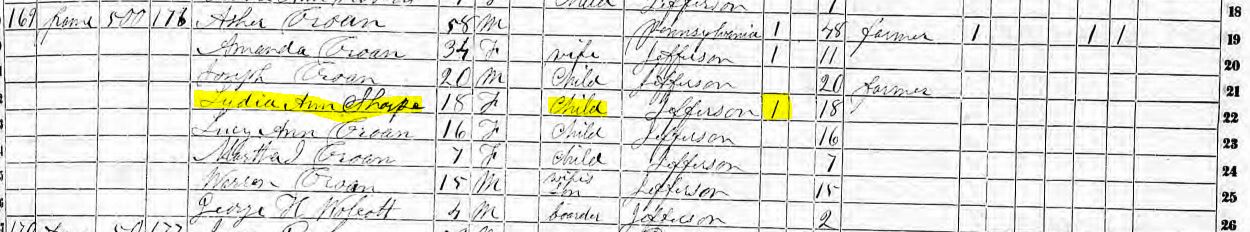 Child Jefferson 1 18
169 frame 500 176 Asher Croan 58 M Pennsylvania 1 48 farmer 1 1 1 19
Amanda Croan 34 F wife Jefferson 1 11 20
Joseph Croan 20 M Child Jefferson 20 farmer 21
Lydia Ann Sharpe 18 F Child Jefferson 1 18 22
Lucy Ann Croan 16 F Child Jefferson 16 23
Martha J Croan 7 F Child Jefferson 7 24
Warren Croan 15 M wife's son Jefferson 15 25
George H Wolcott 4 M boarder Jefferson 2 26
170 177